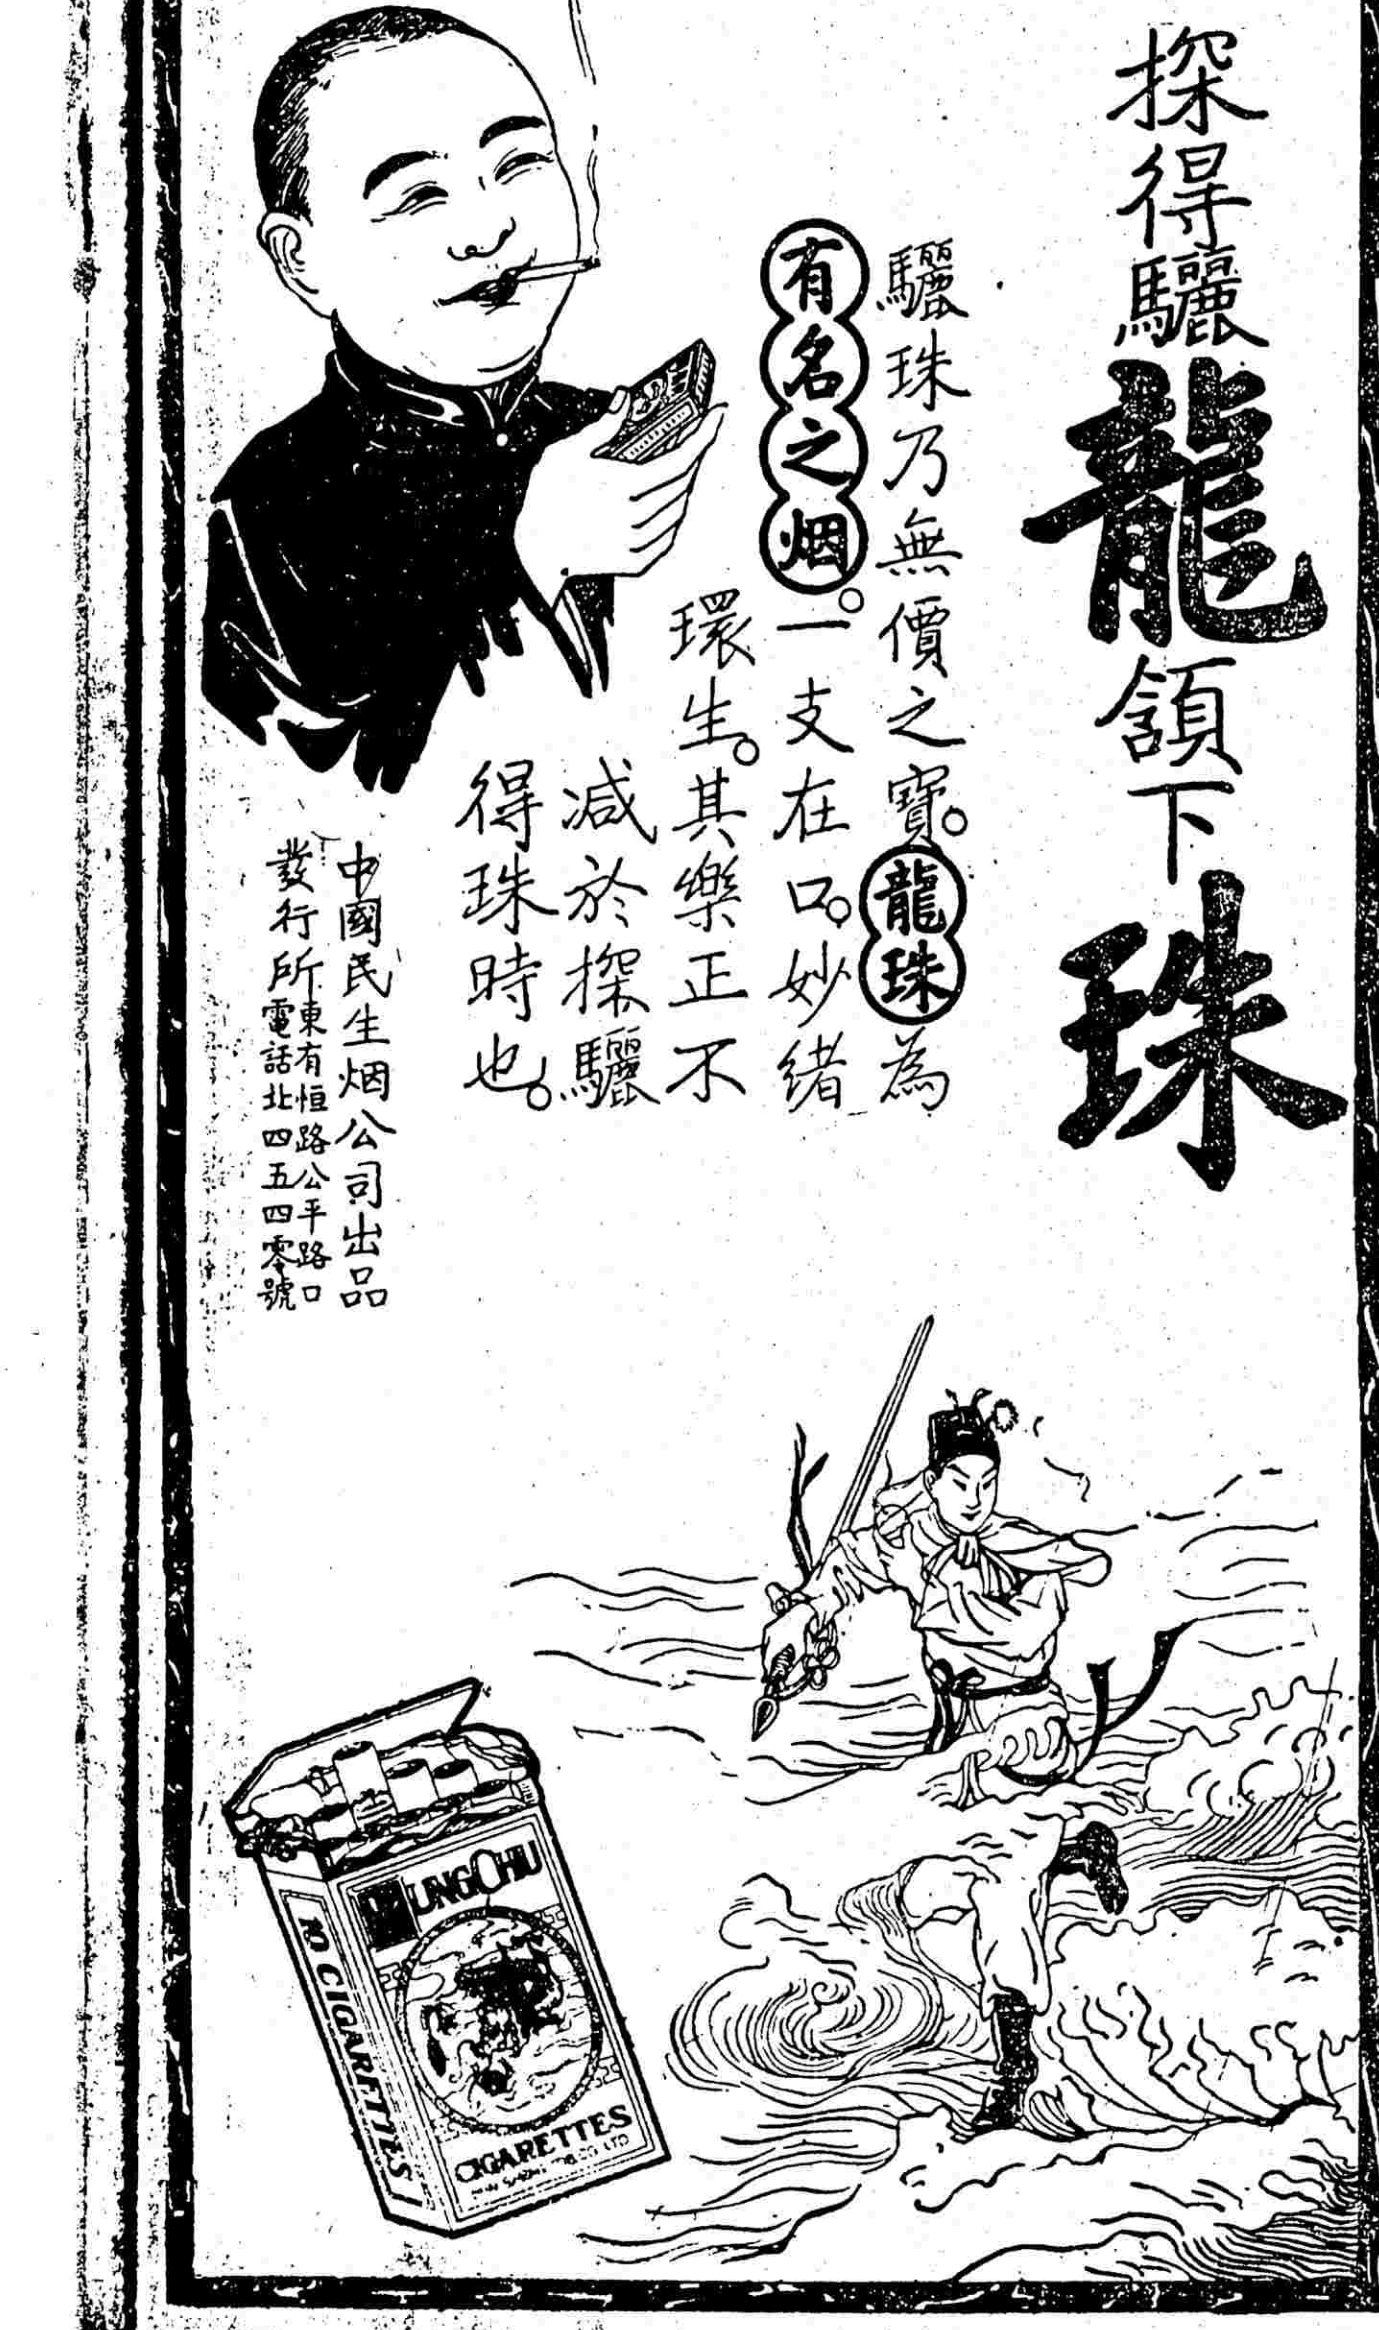 探得驪龍頷下珠
驪珠乃無價之寶。龍珠為
有名之烟。一支在口。妙緒
環生。其樂正不
减於探驪
得珠時也。
中國民生烟公司出品
發行所
東有恒路公平路口
電話北四五四零號
LUNGCHU
10 CIGARETTES
CIGARETTES